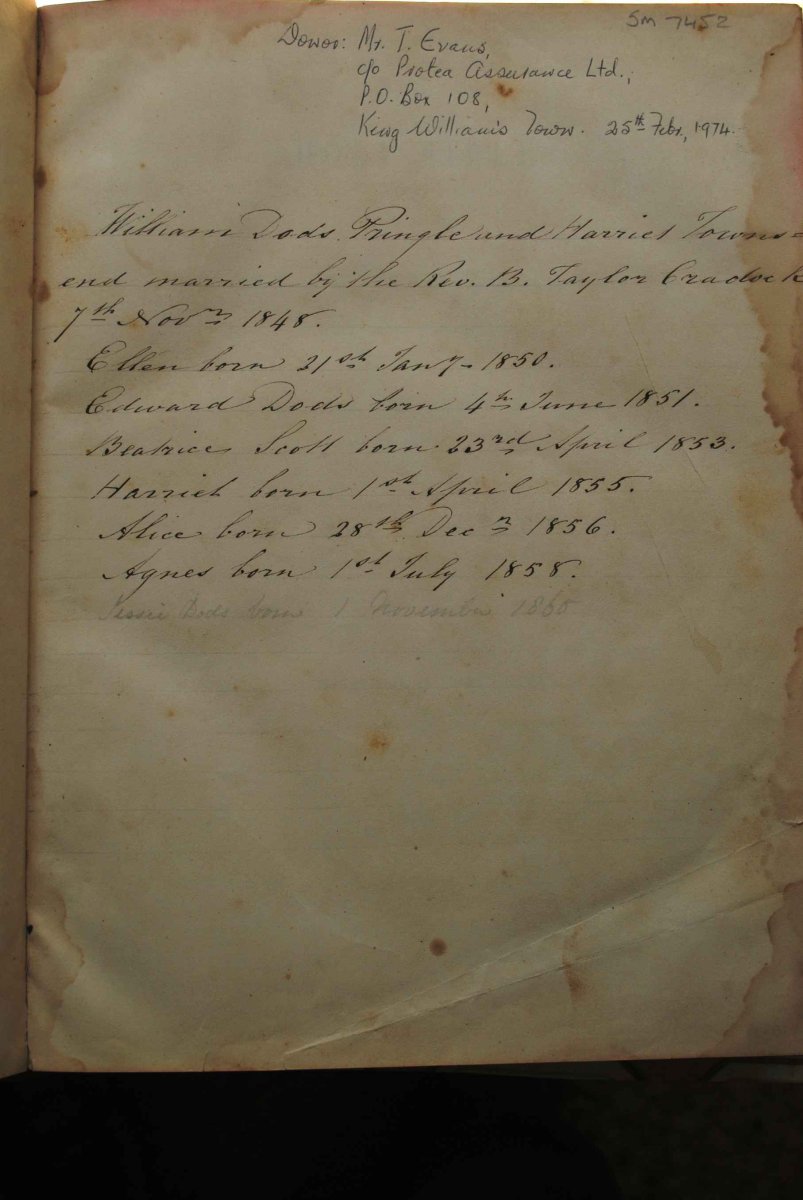 SM 7452
Donor: Mr. T. Evans,
c/o Protea Assurance Ltd.,
P.O. Box 108,
King William's Town. 25th Febr., 1974.
William Dods Pringle and Harriet Towns=
end married by the Rev. B. Taylor Cradock
7th Novr 1848.
Ellen born 21st Jany 1850.
Edward Dods born 4th June 1851.
Beatrice Scott born 23rd April 1853.
Harriet born 1st April 1855.
Alice born 28th Decr 1856.
Agnes born 1st July 1858.
Jessie Dods born 1 November 1860